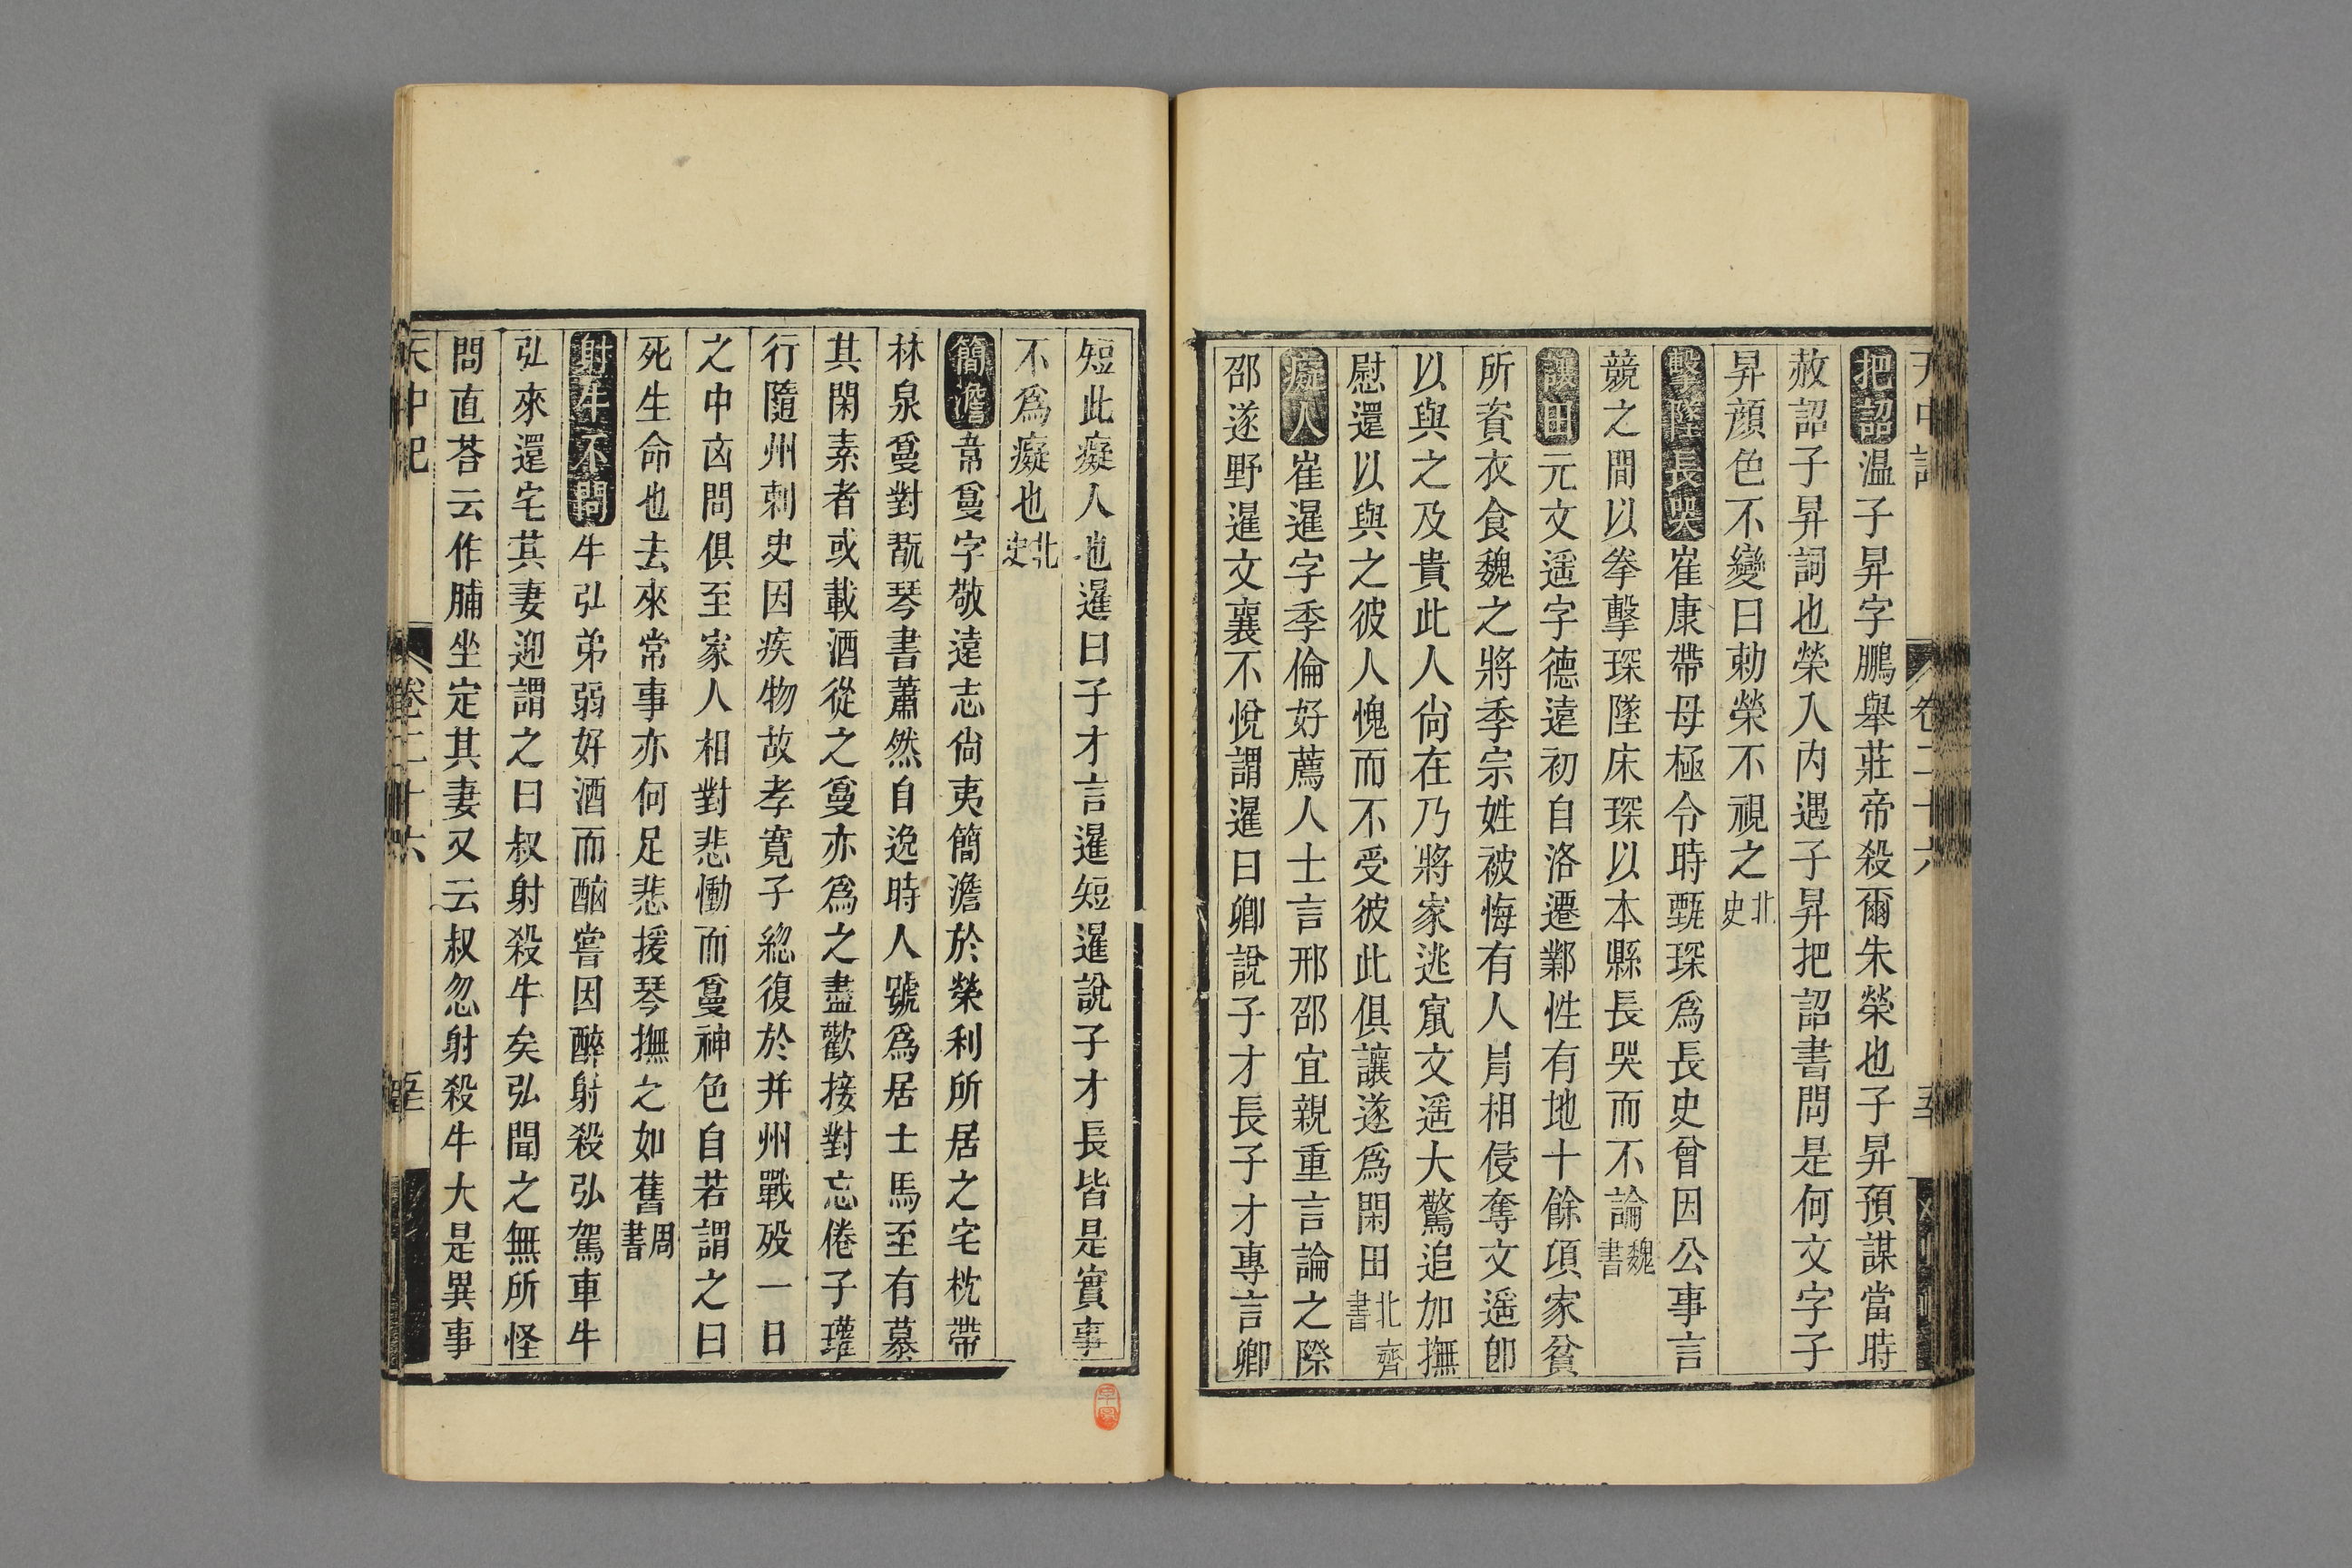 把詔温子昇字鵬舉莊帝殺爾朱榮也子昇預謀當時
赦詔子昇詞也榮入內遇子昇把詔書問是何文字子
昇顔色不變曰勅榮不視之北史
擊墜長哭崔康帶母極令時甄琛爲長史曾因公事言
競之間以拳擊琛墜床琛以本縣長哭而不論魏書
讓田元文遥字德遠初自洛遷鄴性有地十餘項家貧
所資衣食魏之將季宗姓被侮有人冐相侵奪文遥卽
以與之及貴此人尙在乃將家逃竄文遥大驚追加撫
慰還以與之彼人愧而不受彼此俱讓遂爲閑田北齊書
癡人崔暹字季倫好薦人士言邢邵宜親重言論之際
邵遂野暹文襄不悅謂暹曰卿說子才長子才專言卿
短此癡人也暹曰子才言暹短暹說子才長皆是實事
不爲癡也北史
簡澹韋敻字敬遠志尙夷簡澹於榮利所居之宅枕帶
林泉敻對翫琴書蕭然自逸時人號爲居士焉至有慕
其閑素者或載酒從之敻亦爲之盡歡接對忘倦子瓘
行隨州刺史因疾物故孝寬子総復於并州戰殁一日
之中凶問俱至家人相對悲慟而敻神色自若謂之曰
死生命也去來常事亦何足悲援琴撫之如舊周書
射牛不問牛弘弟弼好酒而酗嘗因醉射殺弘駕車牛
弘來還宅其妻迎謂之曰叔射殺牛矣弘聞之無所怪
問直荅云作脯坐定其妻又云叔忽射殺牛大是異事
天中記
卷二十六